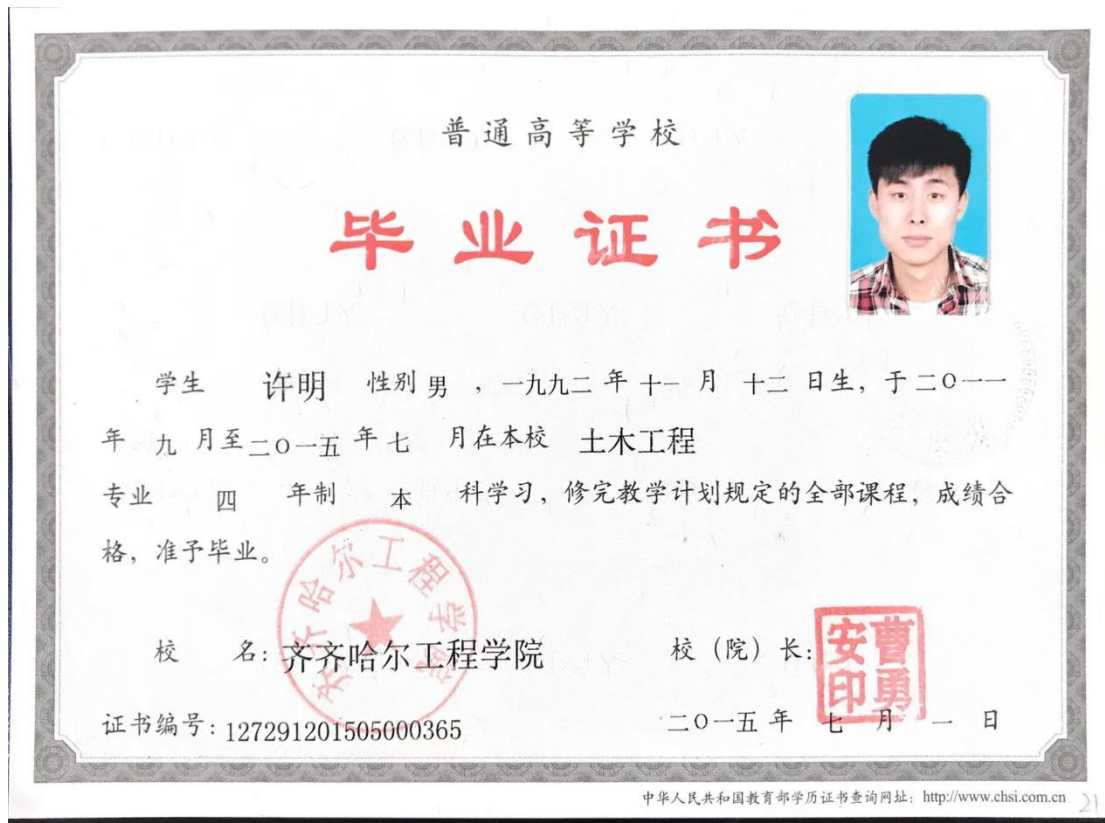 普通高等学校
毕业证书
学生 许明 性别 男 ，一九九二 年 十一 月 十二 日生，于 二〇一一
年 九 月至 二〇一五 年 七 月在本校 土木工程
专业 四 年制 本 科学习，修完教学计划规定的全部课程，成绩合
格，准予毕业。
齐齐哈尔工程学院
校 名：齐齐哈尔工程学院
校（院）长：
曹勇安印
证书编号：127291201505000365
二〇一五 年 七 月 一 日
中华人民共和国教育部学历证书查询网址：http://www.chsi.com.cn
21